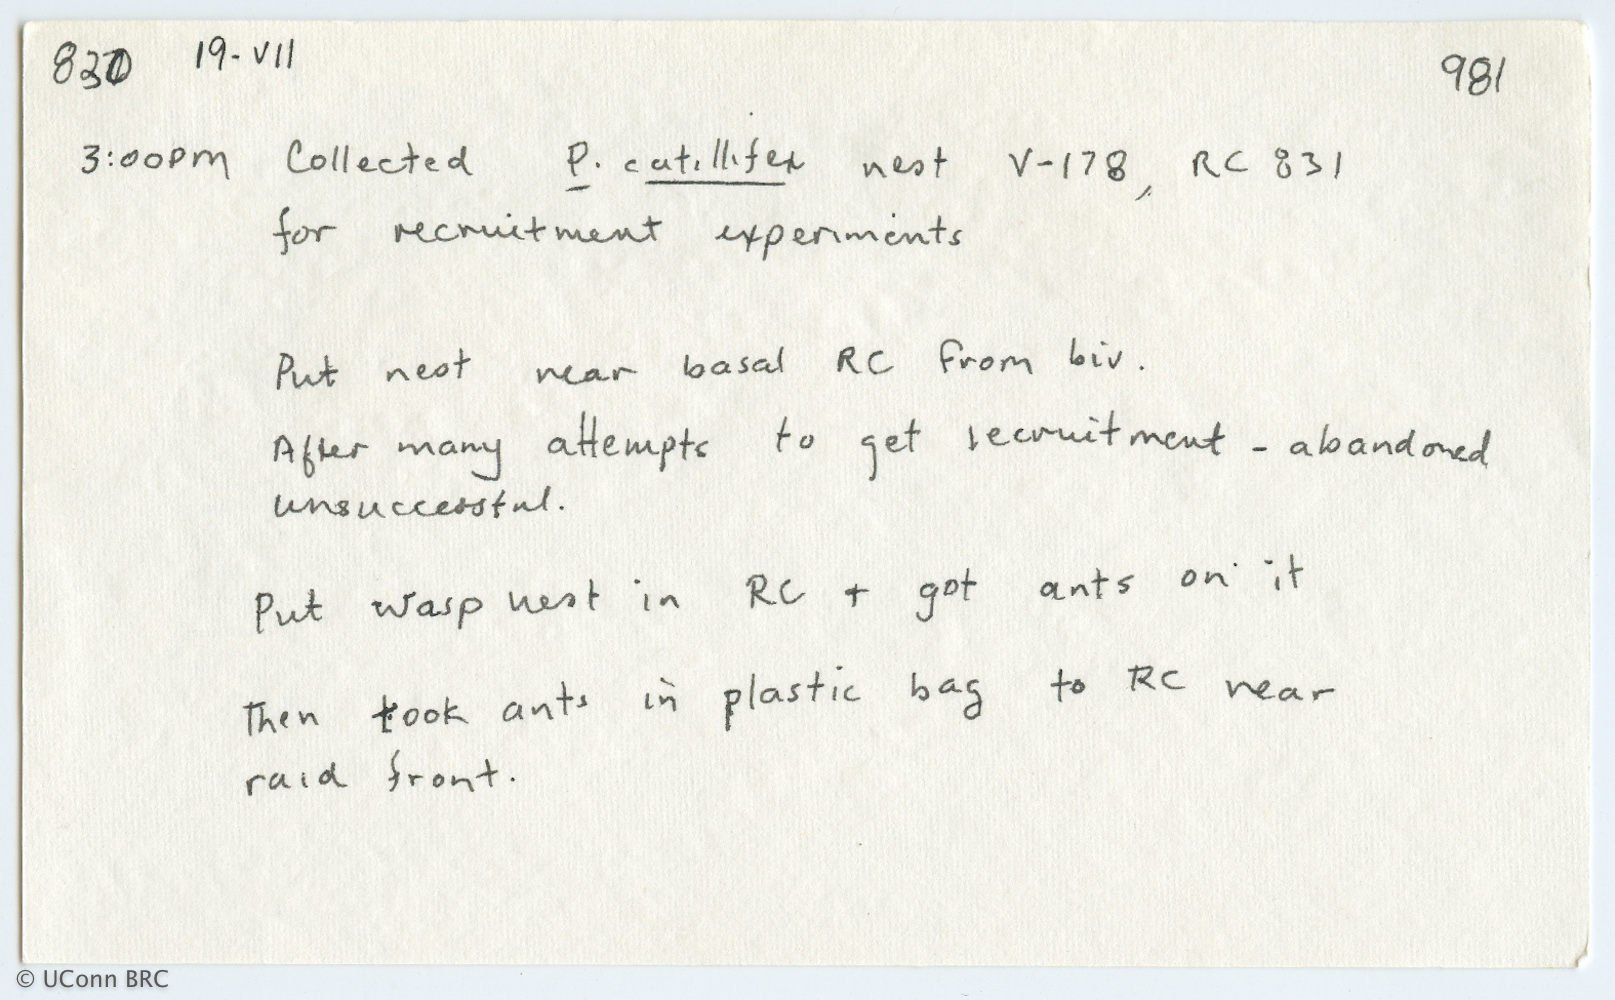 19-VII 981
3:00pm Collected P. catillifex nest V-178, RC 831
for recruitment experiments
Put nest near basal RC from biv.
After many attempts to get recruitment - abandoned
unsuccessful.
Put wasp nest in RC + got ants on it
Then took ants in plastic bag to RC near
raid front.
© UConn BRC